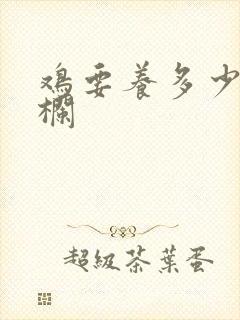 鸡要养多少
欄
超級茶葉蛋